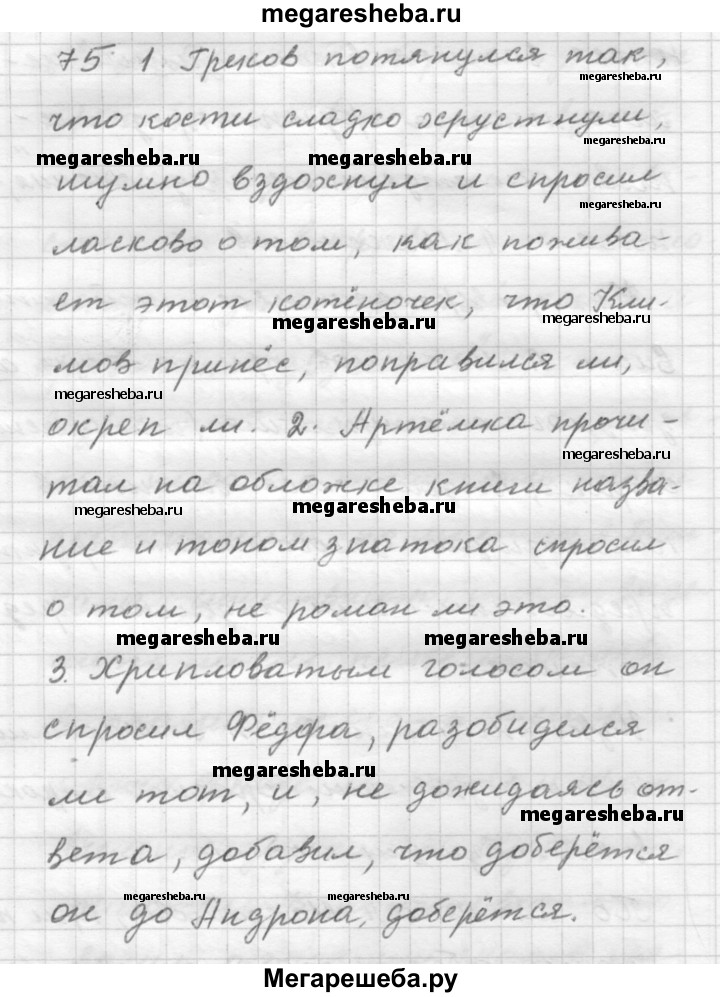 megaresheba.ru
75 1 Греков потянулся так,
megaresheba.ru
что кости сладко хрустнули,
megaresheba.ru megaresheba.ru
шумно вздохнул и спросил
megaresheba.ru
ласково о том, как пожива-
ет этот котёночек, что Кли-
megaresheba.ru megaresheba.ru
мов принёс, поправился ли,
megaresheba.ru
окреп ли. 2. Артёмка прочи-
megaresheba.ru
тал на обложке книги назва-
megaresheba.ru megaresheba.ru
ние и тоном знатока спросил
о том, не роман ли это.
megaresheba.ru megaresheba.ru
3. Хрипловатым голосом он
спросил Фёдора, разобиделся
megaresheba.ru
ли тот, и, не дожидаясь от-
megaresheba.ru
вета, добавил, что доберётся
megaresheba.ru megaresheba.ru
он до Андрона, доберётся.
Мегарешеба.ру